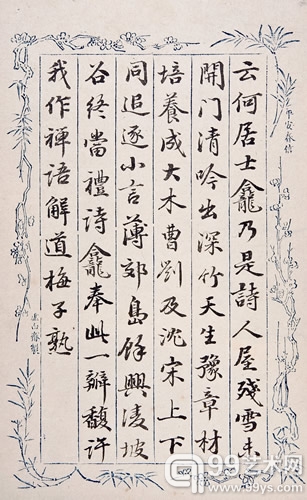 云何居士龕乃是詩人屋殘雪未
開門清吟出深竹天生豫章材
培養成大木曹劉及沈宋上下
同追逐小言薄郊島餘興淩坡
谷終當禮詩龕奉此一瓣馥許
我作禪語解道梅子熟
平安春信
99艺术网
www.99ys.com